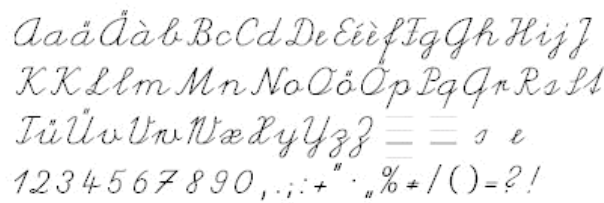 AaäÄàbBcCdDeEéèfFgGhHijJ
KKLlmMnNoOöÖpPqQrRsSt
TüÜvVwWxXyYzZ s e
1234567890,.;:+"·„%*/()=?!